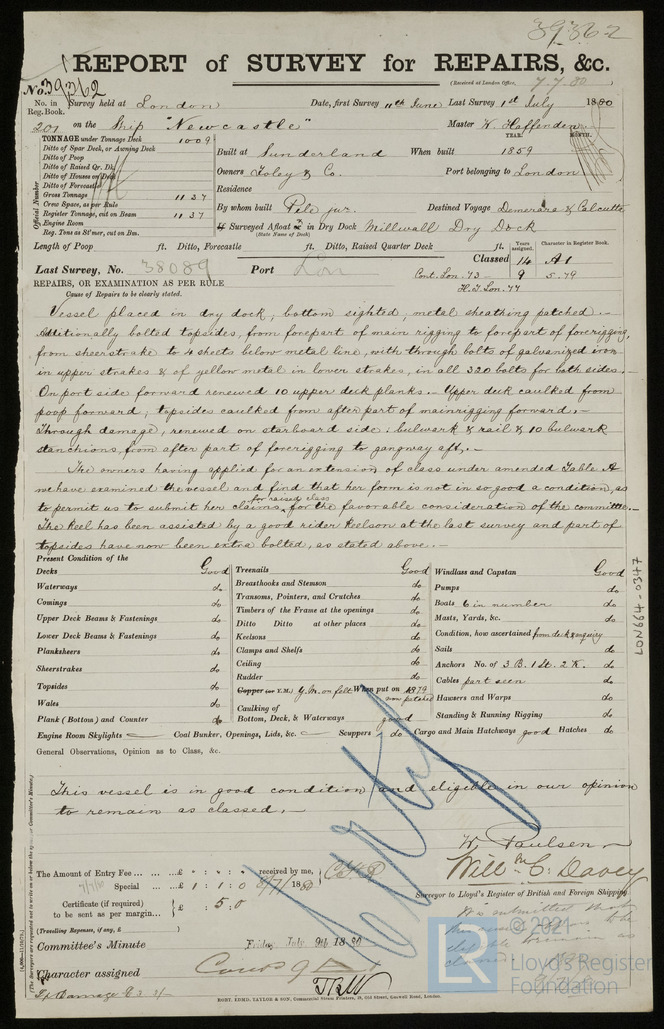 39362
REPORT of SURVEY for REPAIRS, &c.
(Received at London Office, 7.7.80)
No. 39362
No. in Reg. Book. Survey held at London Date, first Survey 11th June Last Survey 1st July 1880
201 on the Ship "Newcastle" Master W. Haffenden
TONNAGE under Tonnage Deck 1009
Ditto of Spar Deck, or Awning Deck
Ditto of Poop
Ditto of Raised Qr. Dk.
Ditto of Houses on Deck
Ditto of Forecastle
Gross Tonnage 1137
Crew Space, as per Rule
Register Tonnage, cut on Beam 1137
Engine Room
Reg. Tons as St'mer, cut on Bm.
Official Number
YEAR. MONTH.
Built at Sunderland When built 1859
Owners Foley & Co. Port belonging to London
Residence
By whom built Pile jur. Destined Voyage Demerara & Calcutta
If Surveyed Afloat & in Dry Dock Millwall Dry Dock
(State Name of Dock)
Length of Poop ft. Ditto, Forecastle ft. Ditto, Raised Quarter Deck ft.
Years assigned. Character in Register Book.
Last Survey, No. 38089 Port Lon Classed 14 A1
Cont. Lon. 73 - 9 5.79
H.T. Lon. 77
REPAIRS, OR EXAMINATION AS PER RULE
Cause of Repairs to be clearly stated.
Vessel placed in dry dock, bottom sighted, metal sheathing patched.-
Additionally bolted topsides, from forepart of main rigging to forepart of forerigging,
from sheerstrake to 4 sheets below metal line, with through bolts of galvanized iron
in upper strakes & of yellow metal in lower strakes, in all 320 bolts for both sides.-
On port side forward renewed 10 upper deck planks.- Upper deck caulked from
poop forward; topsides caulked from after part of mainrigging forward.-
Through damage, renewed on starboard side: bulwark & rail & 10 bulwark
stanchions, from after part of forerigging to gangway aft.-
The owners having applied for an extension of class under amended Table A
we have examined the vessel and find that her form is not in so good a condition, as
to permit us to submit her claims for raised class for the favorable consideration of the committee.-
The keel has been assisted by a good rider keelson at the last survey and part of
topsides have now been extra bolted, as stated above.-
Present Condition of the
Decks Good
Waterways do
Comings do
Upper Deck Beams & Fastenings do
Lower Deck Beams & Fastenings do
Planksheers do
Sheerstrakes do
Topsides do
Wales do
Plank (Bottom) and Counter do
Treenails Good
Breasthooks and Stemson do
Transoms, Pointers, and Crutches do
Timbers of the Frame at the openings do
Ditto Ditto at other places do
Keelsons do
Clamps and Shelfs do
Ceiling do
Rudder do
Copper (or Y.M.) Y.M. on felt When put on 1879
now patched
Caulking of
Bottom, Deck, & Waterways good
Windlass and Capstan Good
Pumps do
Boats 6 in number do
Masts, Yards, &c. do
Condition, how ascertained from deck & enquiry
Sails do
Anchors No. of 3 B. 1 St. 2 K. do
Cables part seen do
Hawsers and Warps do
Standing & Running Rigging do
Engine Room Skylights - Coal Bunker, Openings, Lids, &c. - Scuppers do Cargo and Main Hatchways good Hatches do
General Observations, Opinion as to Class, &c.
This vessel is in good condition and eligible in our opinion
to remain as classed.-
W. Paulsen
Will m C. Davey
Surveyor to Lloyd's Register of British and Foreign Shipping
The Amount of Entry Fee ... £ : : received by me,
7/7/80 Special ... £ 1 : 1 : 0 8/7/ 1880
Certificate (if required)
to be sent as per margin... £ 5 : 0
(Travelling Expenses, if any, £ )
Committee's Minute Friday July 9th 1880
Character assigned
ROBT. EDMD. TAYLOR & SON, Commercial Steam Printers, 19, Old Street, Goswell Road, London.
LON994-0347
LR
© 2021
Lloyd's Register
Foundation